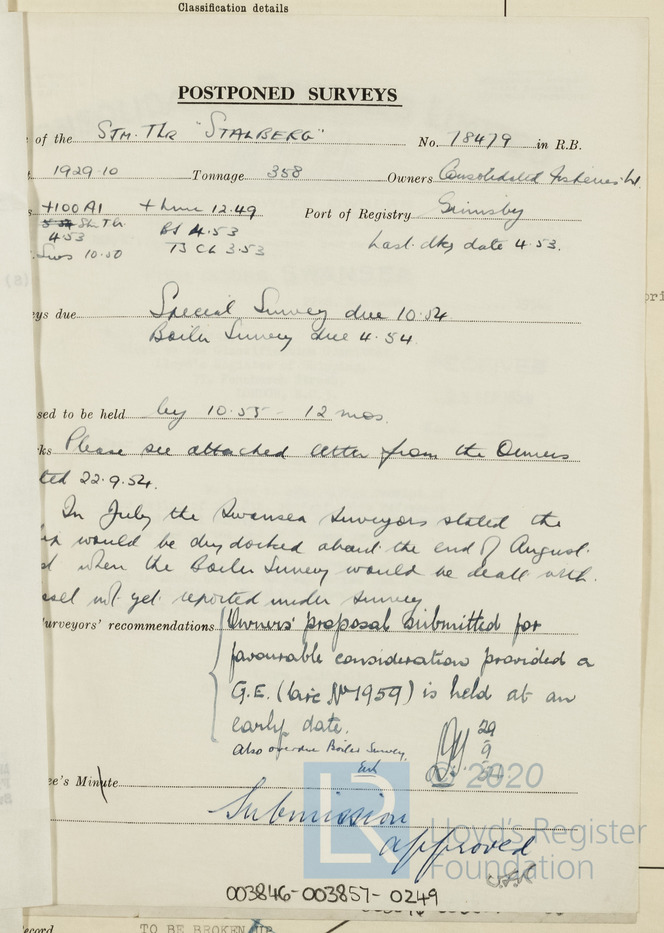 Classification details
POSTPONED SURVEYS
of the STM. TLR "STALBERG" No. 78479 in R.B.
1929.10 Tonnage 358 Owners Consolidated Fisheries Ltd.
+100A1 + LMC 12.49 Port of Registry Grimsby
Stm Tlr. BS 4.53 Last dkg date 4.53.
4.53 TS CL 3.53
10.50
eys due Special Survey due 10.54
Boiler Survey due 4.54.
sed to be held by 10.55 - 12 mos.
ks Please see attached letter from the Owners
ted 22.9.54.
In July the Swansea Surveyors stated the
would be drydocked about the end of August
d when the Boiler Survey would be dealt with.
essel not yet reported under survey
urveyors' recommendations Owners' proposal submitted for
favourable consideration provided a
G.E. (Circ No 1959) is held at an
early date.
also overdue Boiler Survey. 29
9
ee's Minute
© 2020
Submission
approved
Lloyd's Register
Foundation
003846-003857-0249
ecord TO BE BROKEN UP